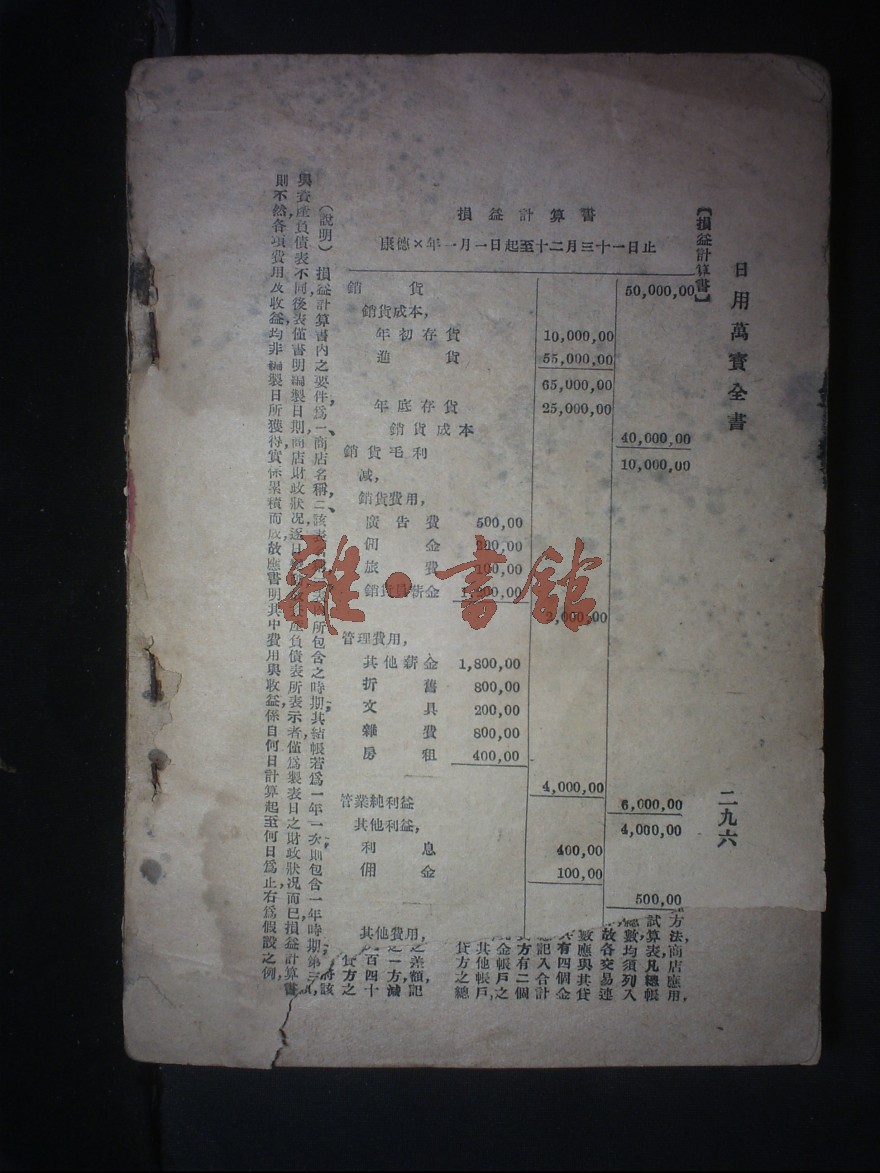 日用萬寶全書
二九六
【損益計算書】
損益計算書
康德×年一月一日起至十二月三十一日止
銷貨 50,000,00
銷貨成本，
年初存貨 10,000,00
進貨 55,000,00
65,000,00
年底存貨 25,000,00
銷貨成本 40,000,00
銷貨毛利 10,000,00
減，
銷貨費用，
廣告費 500,00
佣金
旅費 100,00
銷貨員薪金
管理費用，
其他薪金 1,800,00
折舊 800,00
文具 200,00
雜費 800,00
房租 400,00
4,000,00
6,000,00
管業純利益 4,000,00
其他利益，
利息 400,00
佣金 100,00
500,00
其他費用，
（說明）損益計算書內之要件，爲一、商店名稱，二、該表 所包含之時期，其結帳若爲一年一次，則包含一年時期，第三
與資產負債表不同，後表僅書明編製日期，商店財政狀况，逐日 負債表所表示者，僅爲製表日之財政狀况而已，損益計算書
則不然，各項費用及收益，均非編製日所獲得，實係累積而成，故應書明其中費用與收益，係自何日計算起至何日爲止，右爲假設之例，
方法，商店應用，
試算表，凡總帳
總數均須列入
故各交易連
數應與其貸
有四個金
記入合計
方有二個
金帳戶之
其他帳戶，
貸方之總
之差額，記
之一方，減
百四十
貸方之
將該